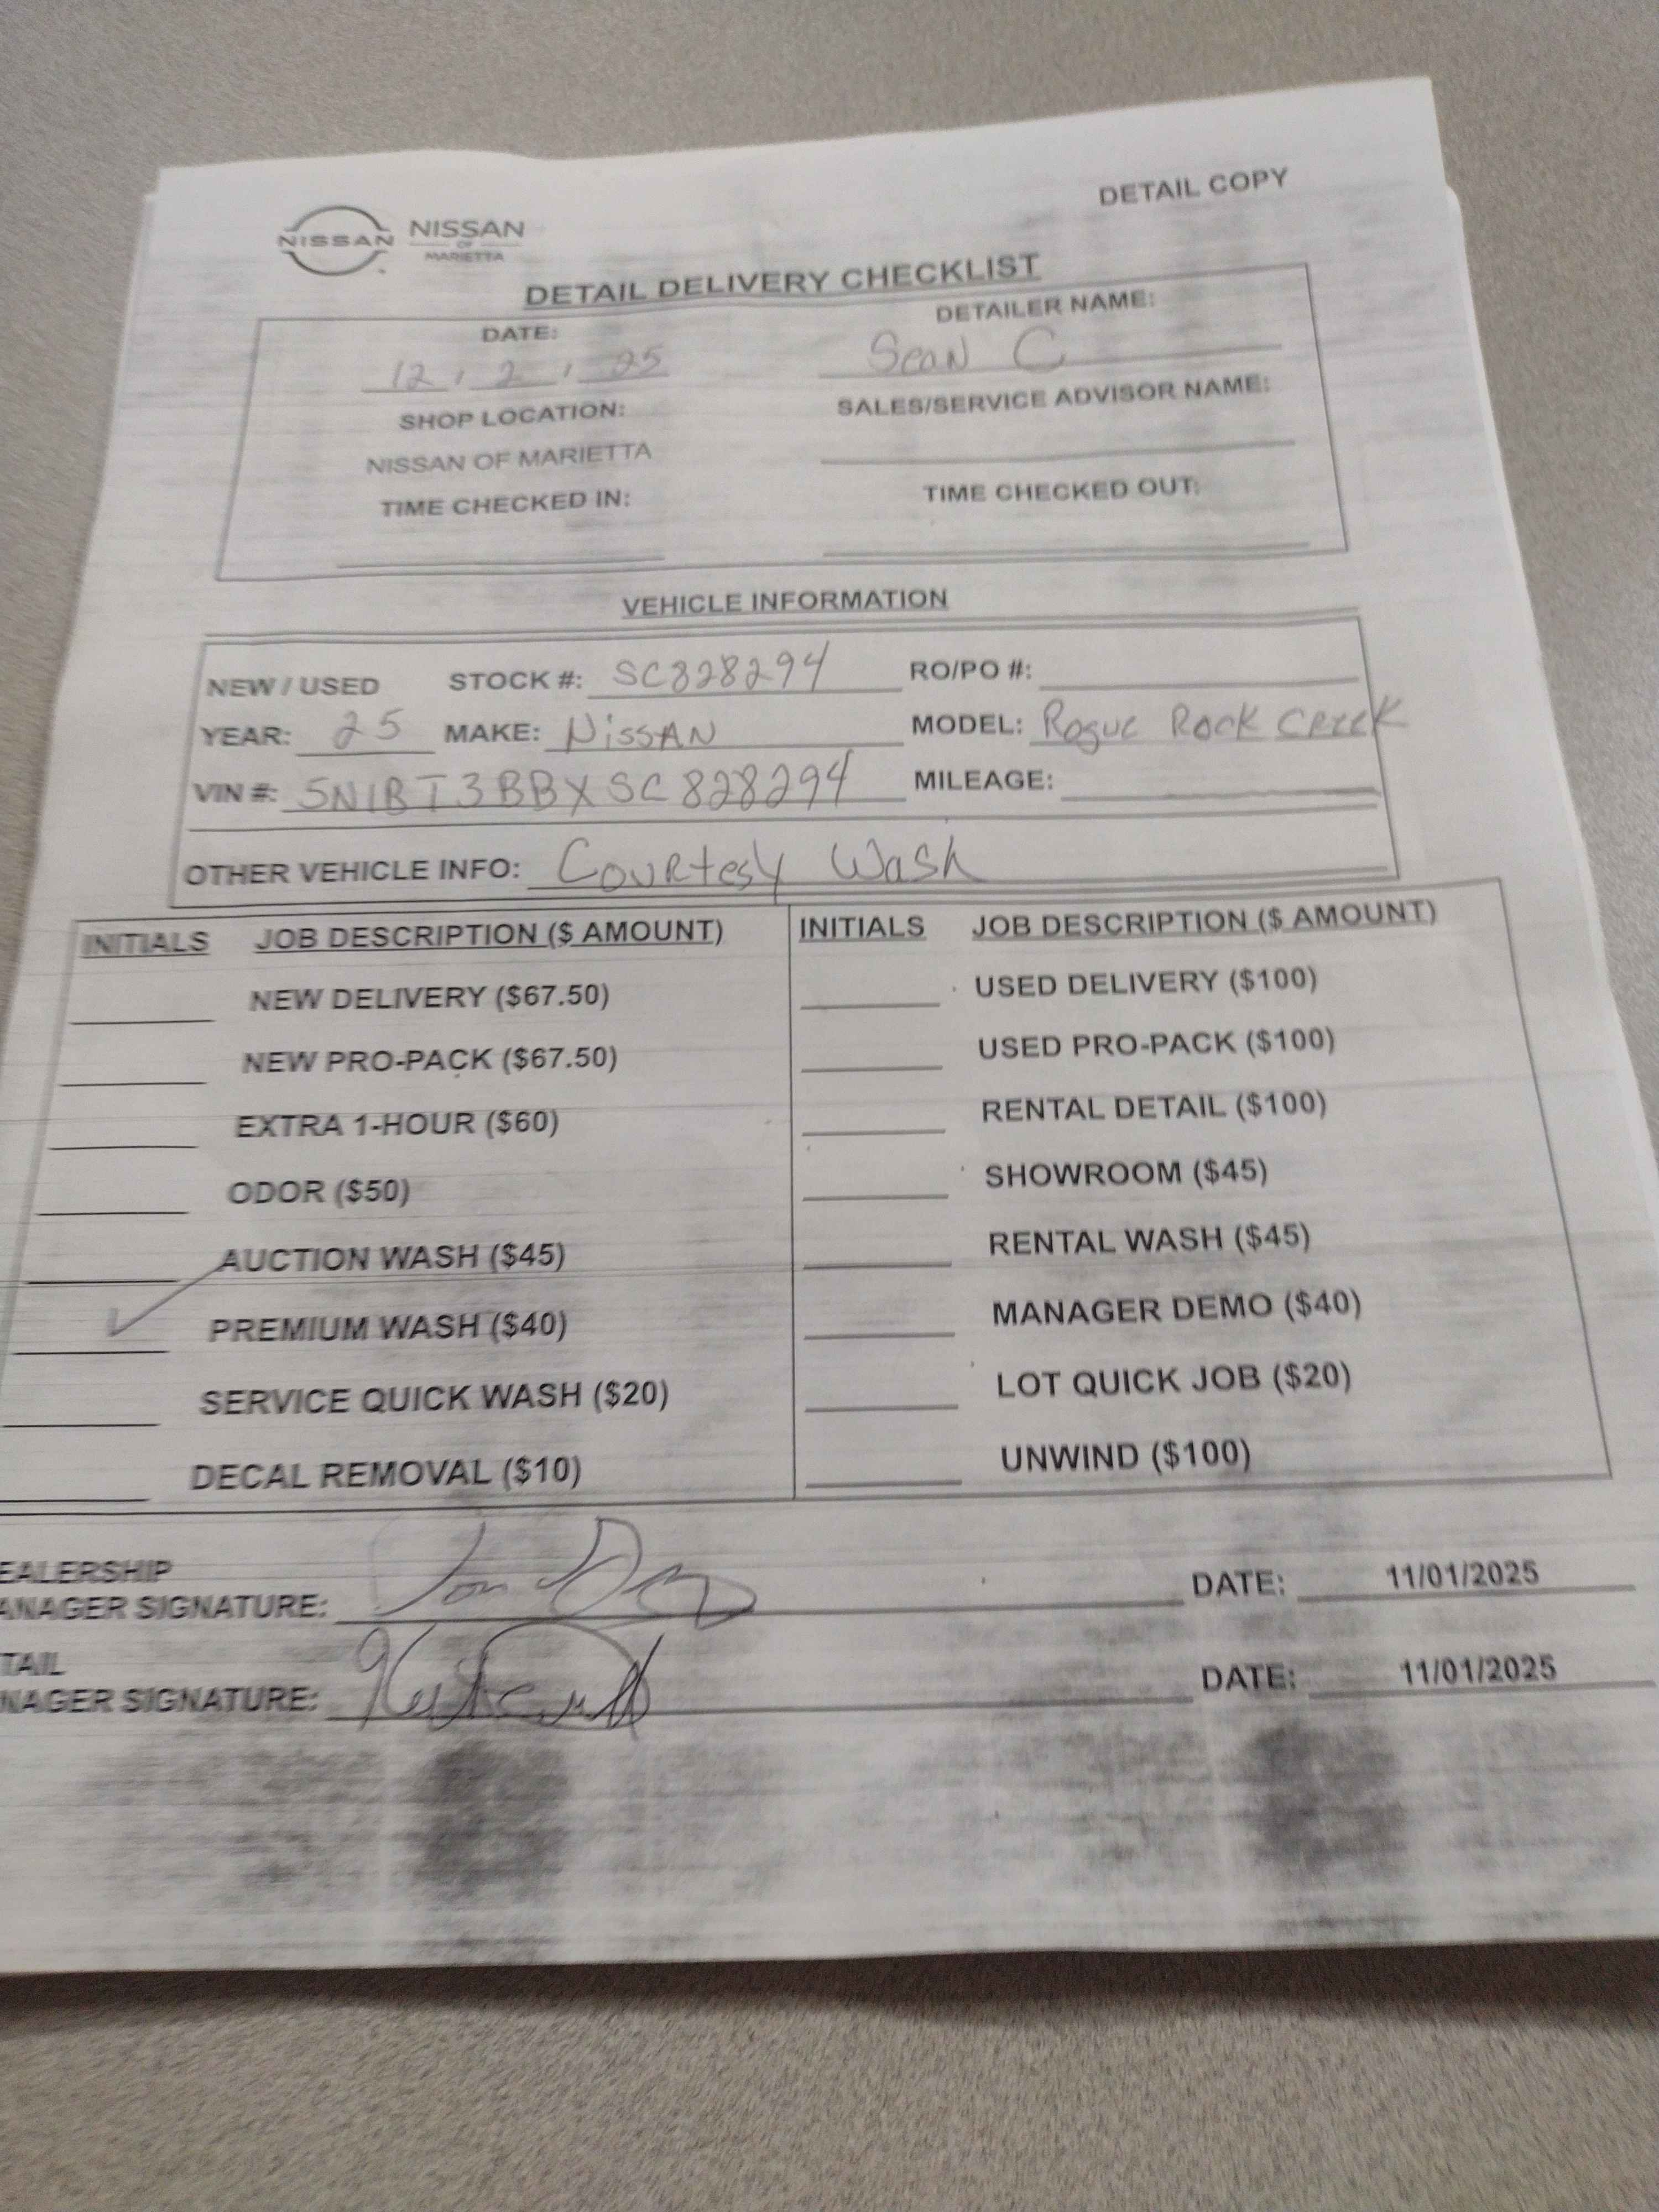 DETAIL COPY
NISSAN NISSAN OF MARIETTA
DETAIL DELIVERY CHECKLIST
DATE: DETAILER NAME:
12 / 2 / 25 Sean C
SHOP LOCATION: SALES/SERVICE ADVISOR NAME:
NISSAN OF MARIETTA
TIME CHECKED IN: TIME CHECKED OUT:
VEHICLE INFORMATION
NEW / USED STOCK #: SC828294 RO/PO #:
YEAR: 25 MAKE: NissAN MODEL: Rogue Rock Creek
VIN #: 5N1BT3BBXSC828294 MILEAGE:
OTHER VEHICLE INFO: Courtesy Wash
INITIALS JOB DESCRIPTION ($ AMOUNT) INITIALS JOB DESCRIPTION ($ AMOUNT)
NEW DELIVERY ($67.50) USED DELIVERY ($100)
NEW PRO-PACK ($67.50) USED PRO-PACK ($100)
EXTRA 1-HOUR ($60) RENTAL DETAIL ($100)
ODOR ($50) SHOWROOM ($45)
AUCTION WASH ($45) RENTAL WASH ($45)
PREMIUM WASH ($40) MANAGER DEMO ($40)
SERVICE QUICK WASH ($20) LOT QUICK JOB ($20)
DECAL REMOVAL ($10) UNWIND ($100)
EALERSHIP
ANAGER SIGNATURE: DATE: 11/01/2025
TAIL
NAGER SIGNATURE: DATE: 11/01/2025